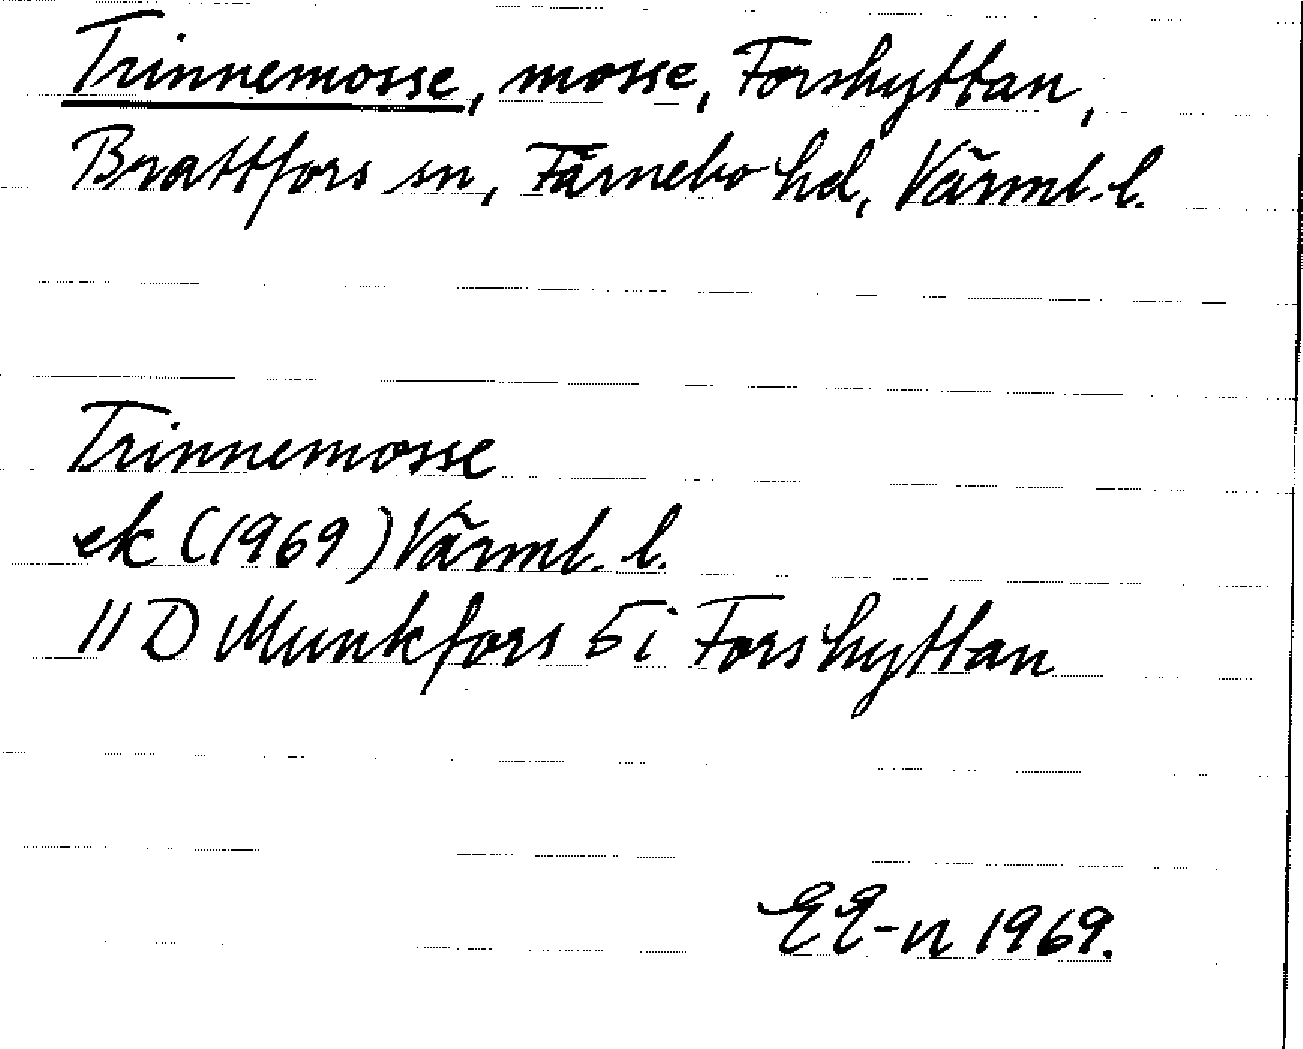 Trinnemosse, mosse, Forshyttan,
Brattfors sn, Färnebo hd, Värml. l.
Trinnemosse
ek (1969) Värml. l.
11 D Munkfors 5i Forshyttan
EE-n 1969.